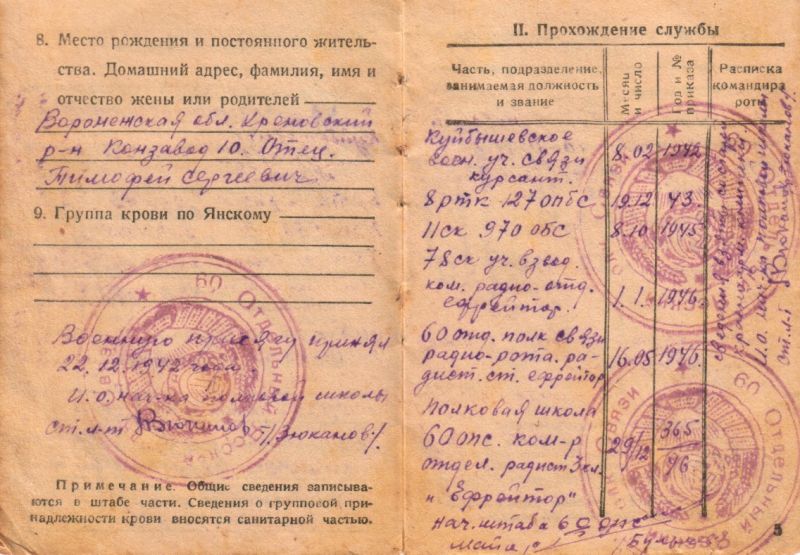 8. Место рождения и постоянного житель-
ства. Домашний адрес, фамилия, имя и
отчество жены или родителей
Воронежская обл. Хреновский
р-н Конзавод 10. Отец.
Тимофей Сергеевич
9. Группа крови по Янскому
Военную присягу принял
22.12.1942 года.
И.о. нач-ка полковой школы
ст. л-т /Зюканов/
60 Отдельный
Связи
Примечание. Общие сведения записыва-
ются в штабе части. Сведения о групповой при-
надлежности крови вносятся санитарной частью.
II. Прохождение службы
Часть, подразделение, занимаемая должность и звание
Месяц и число
Год и № приказа
Расписка командира роты
Куйбышевское
воен. уч. связи 8.02 1942
курсант.
8 ртк 127 опбс 19.12 43
11ск 970 обс 8.10 1945
78ск уч. взвод
ком. радио-отд.
ефрейтор. 1.1. 1946
60 отд. полк связи
радио-рота. ра- 16.05 1946
дист. ст. ефрейтор
Полковая школа
60 опс. ком-р 29/12 365/46
отдел. радист 3 кл.
"Ефрейтор"
нач. штаба 60 опс
И.о. нач-ка полковой школы
ст. л-т
Связи
60 Отдельный
5